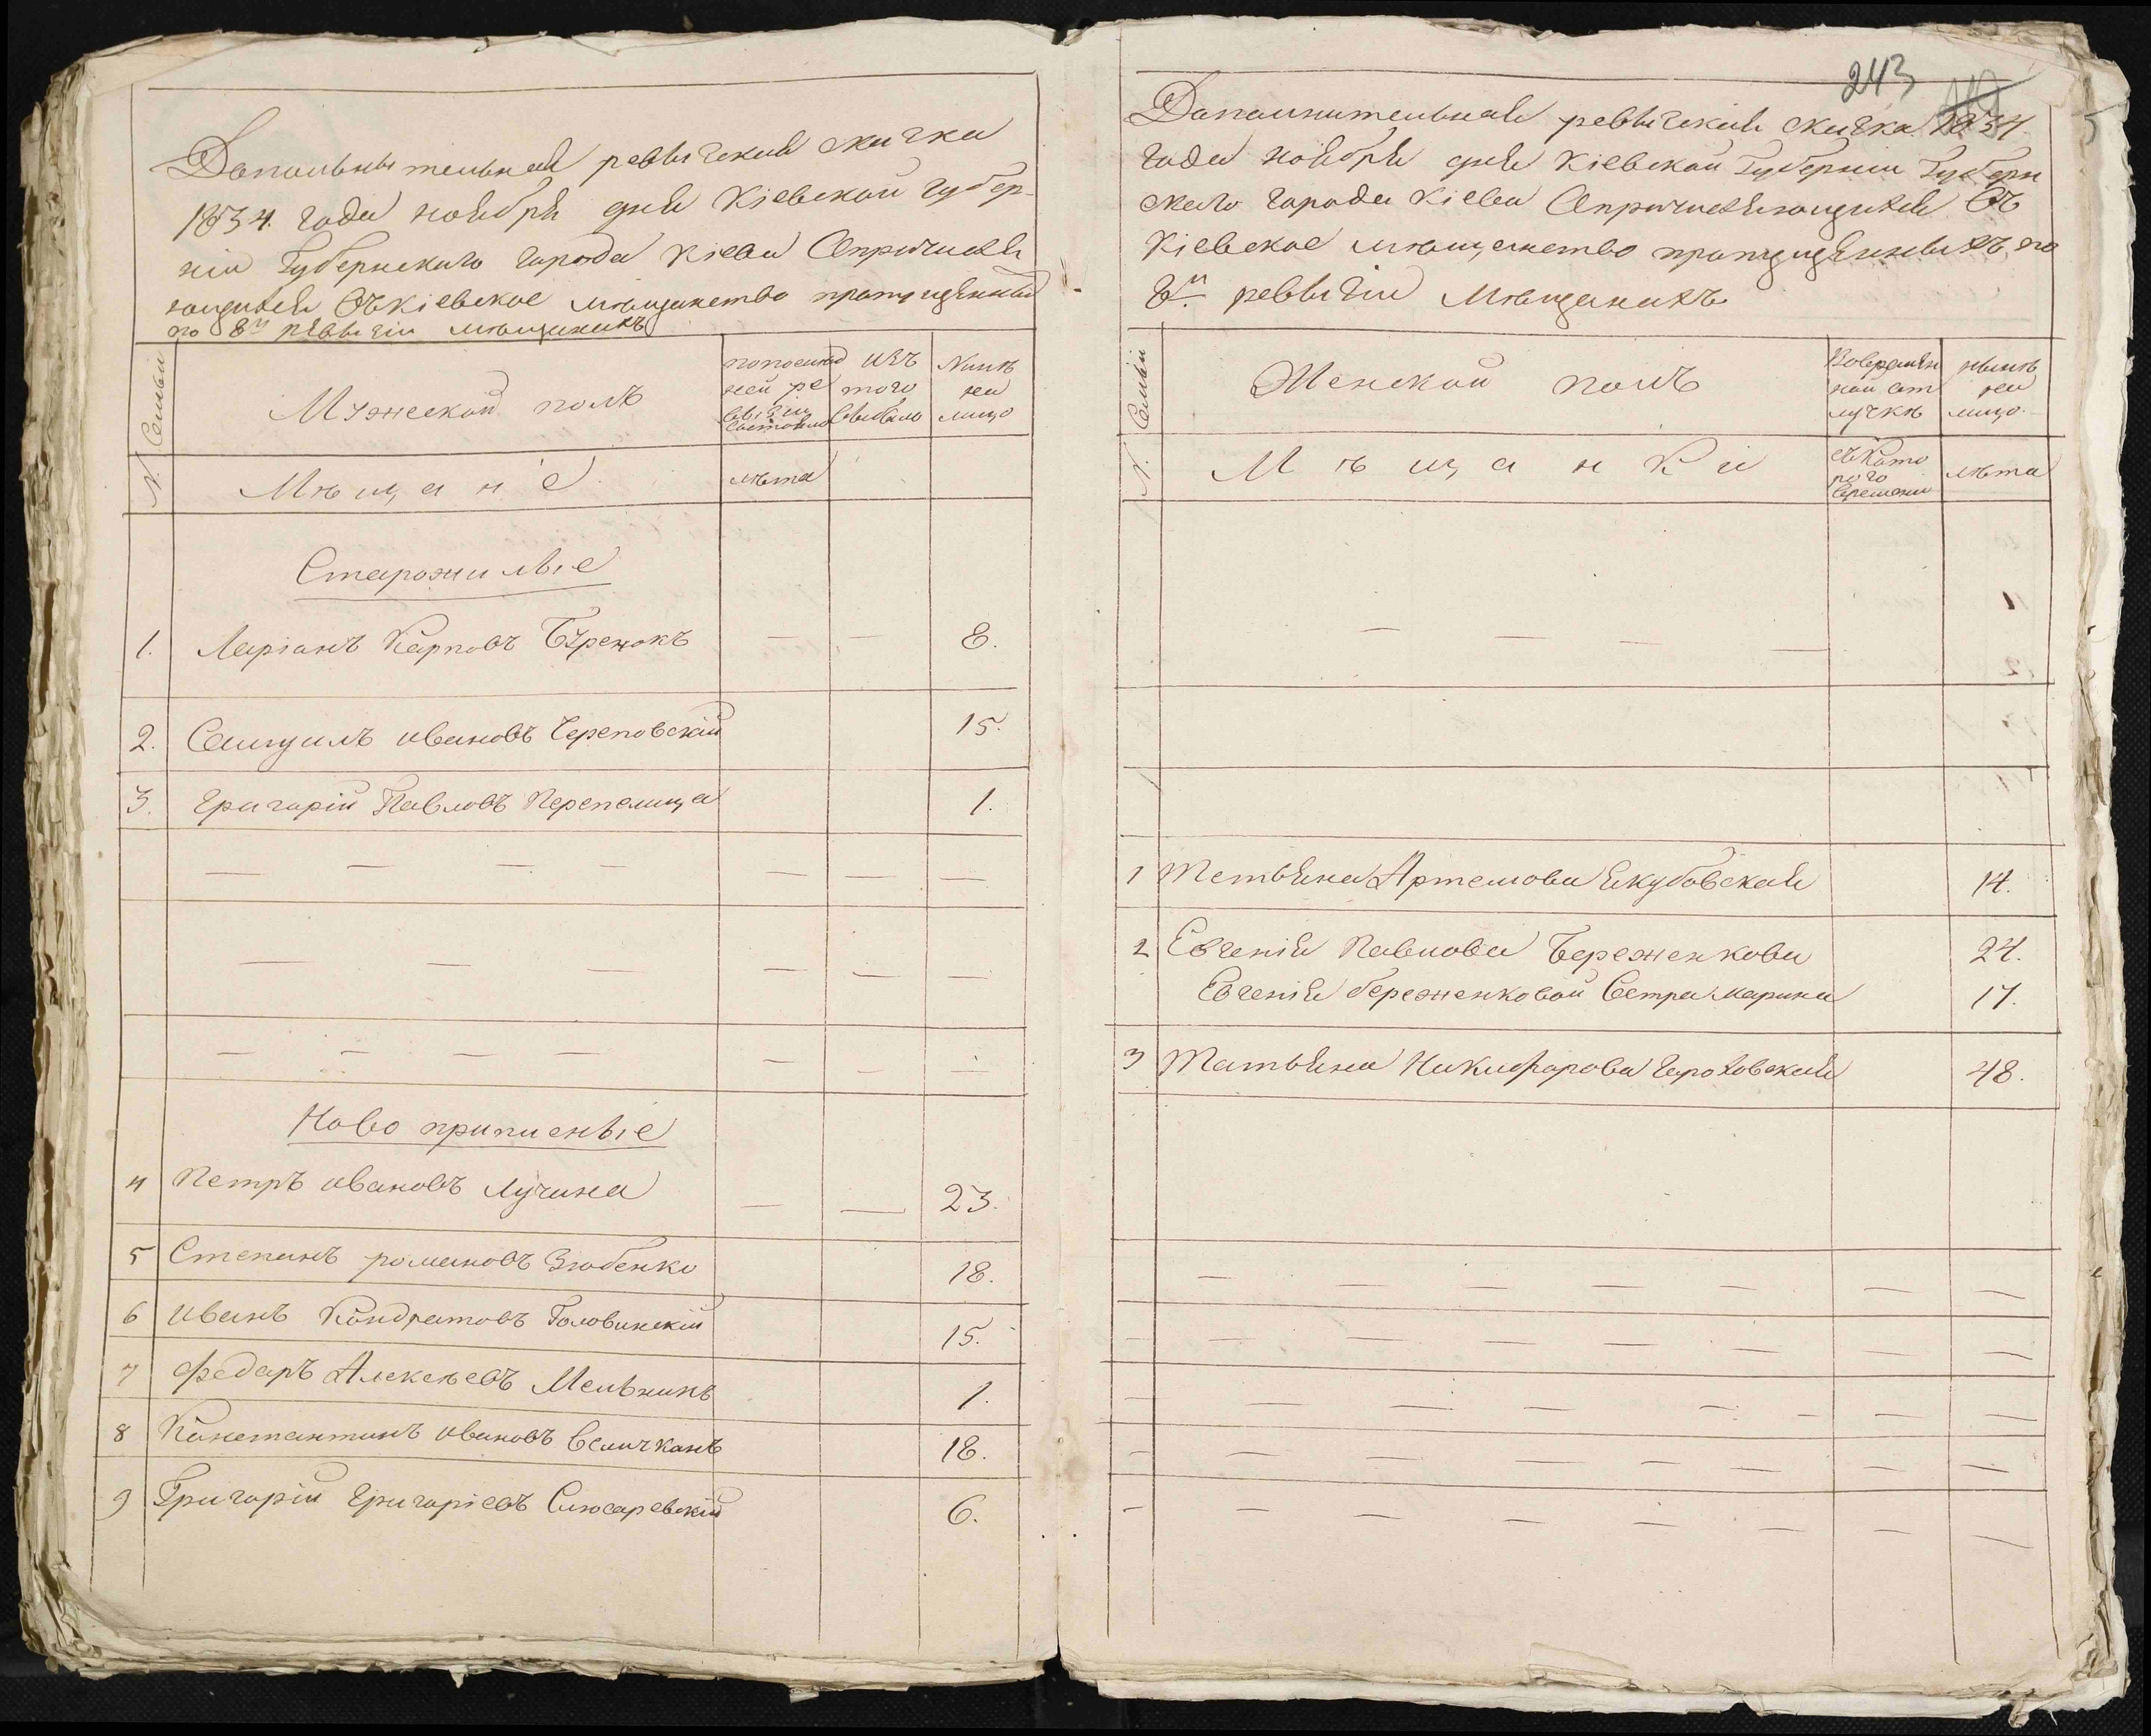 Дапольнительная реввиская скаска
1834. года ноября дня Кіевской губер-
ніи Губернскаго города Кіева Опричисля
ющихся Въ кіевское мѣщанство пропущенныхъ
по 8й реввизіи мѣщинахъ
№. Семьи
Мужескай полъ
попослед
ней ре
ввизіи
Состояло
изъ
того
Выбыло
Нынѣ
на
лицо
Мѣщане
лѣта
Старожилые
1. Ларіанъ Карповъ Буренокъ — — 8.
2. Самуилъ ивановъ Череповскій 15.
3. Григорій Павловъ Перепелица 1.
Ново приписные
4 Петръ ивановъ Лучина — — 23.
5 Степанъ романовъ Зюбенко 18.
6 иванъ Кондратовъ Головинскій 15.
7 Федаръ Алексѣевъ Мельникъ 1.
8 Констант­инъ ивановъ Величканъ 18.
9 Григорій Григоріевъ Слюсаревскій 6.
243
Дапалнительная реввиская скаска 1834.
года ноября дня Кіевской Губерніи Губерн
скаго города Кіева Опричисляющихся Въ
Кіевское мѣщанство пропущенныхъ по
8й реввизіи Мѣщанахъ
№. Семьи
Женскай полъ
Вовремян
най от
лучкѣ
нынѣ
на
лицо.
Мѣщанки
съ Като
раго
Времени
лѣта
1 Тетьяна Артемова Якубовская 14.
2 Евгенія Павлова Береженкова 24.
Евгеніи береженковой Сестра марина 17.
3 Татьяна Никифарова Гороховская 48.